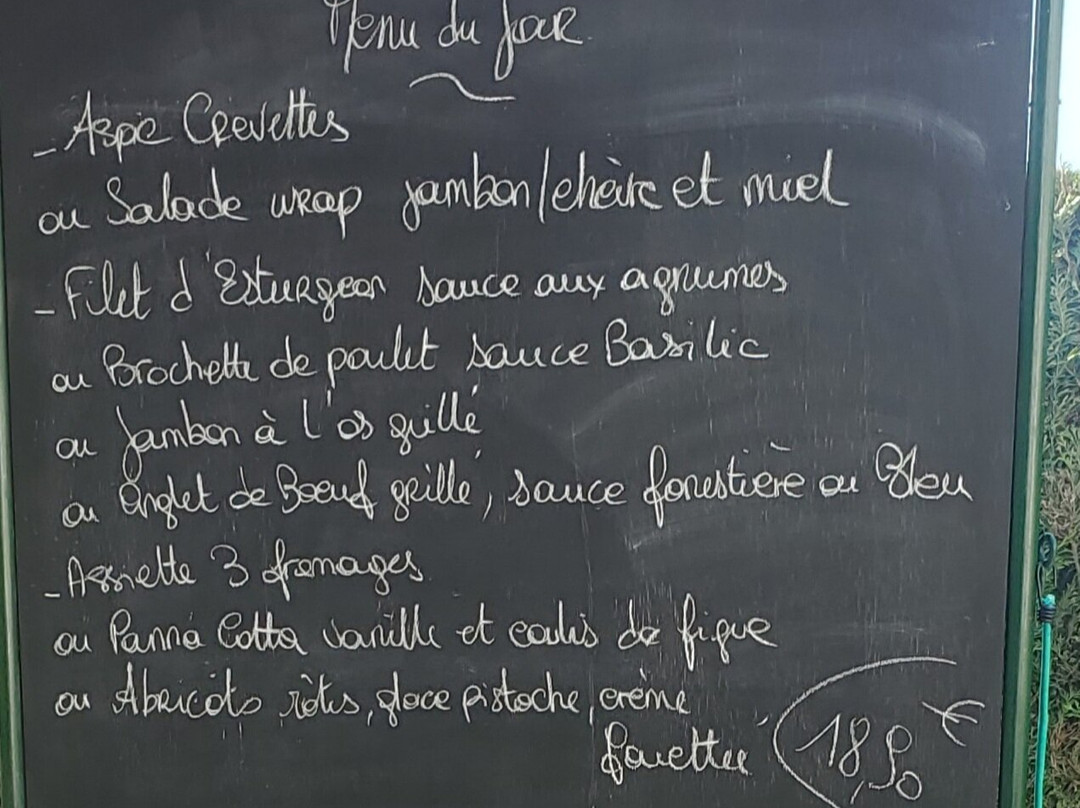 Menu du Jour
- Aspic Crevettes
ou Salade wrap jambon/chèvre et miel
- Filet d'Esturgeon sauce aux agrumes
ou Brochette de poulet sauce Basilic
ou Jambon à l'os grillé
ou Onglet de Boeuf grillé, sauce forestière ou Bleu
- Assiette 3 fromages
ou Panna Cotta vanille et coulis de figue
ou Abricots rôtis, glace pistache, crème
fouettée
18,50 €